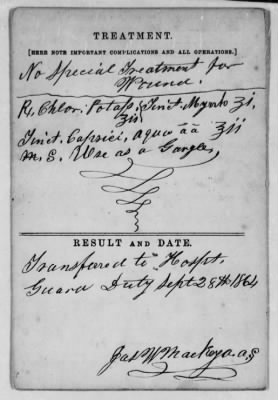 TREATMENT.
[HERE NOTE IMPORTANT COMPLICATIONS AND ALL OPERATIONS.]
No Special Treatment for
Wound.
Rx Chlor. Potass ; Tinct. Myrrh ʒi,
ʒiss
Tinct. Capsici, aquae āā ʒii
M. S. Use as a Gargle,
RESULT AND DATE.
Transferred to Hospt.
Guard Duty Sept 28th 1864
Jas W Mackey a.a.S